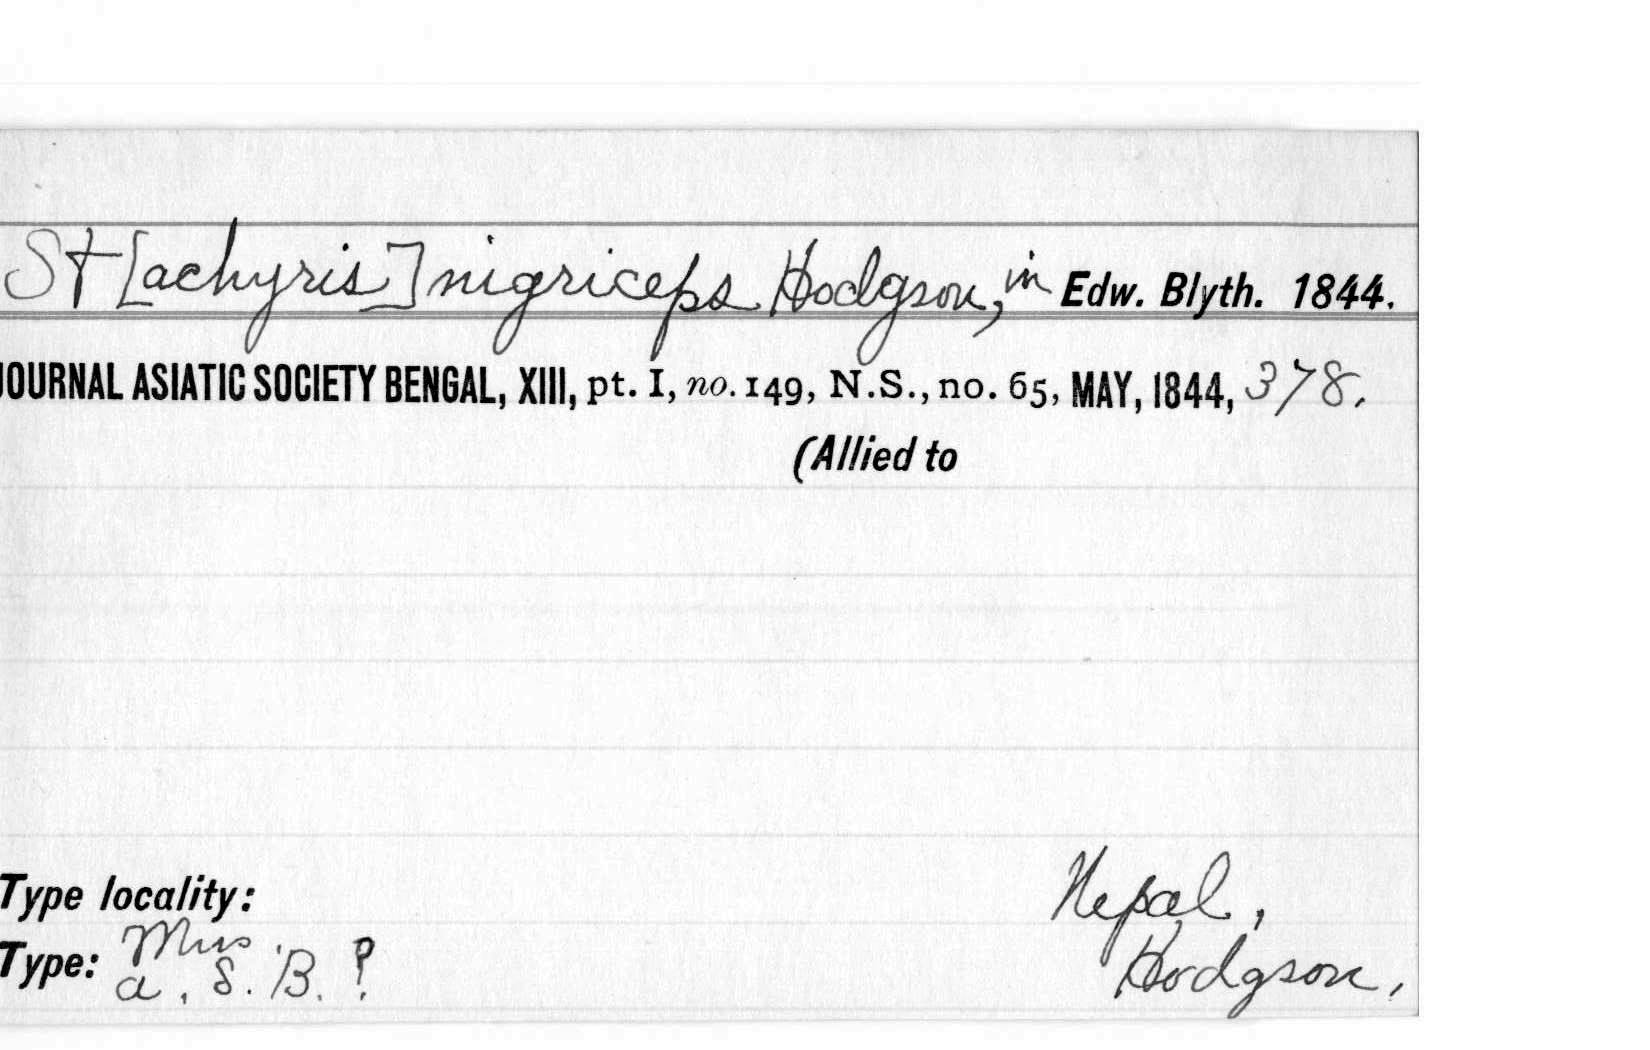 St[achyris] nigriceps Hodgson, in Edw. Blyth. 1844.
JOURNAL ASIATIC SOCIETY BENGAL, XIII, pt. I, no. 149, N.S., no. 65, MAY, 1844, 378.
(Allied to
Type locality: Nepal,
Type: Mus. a. S. B. ? Hodgson,